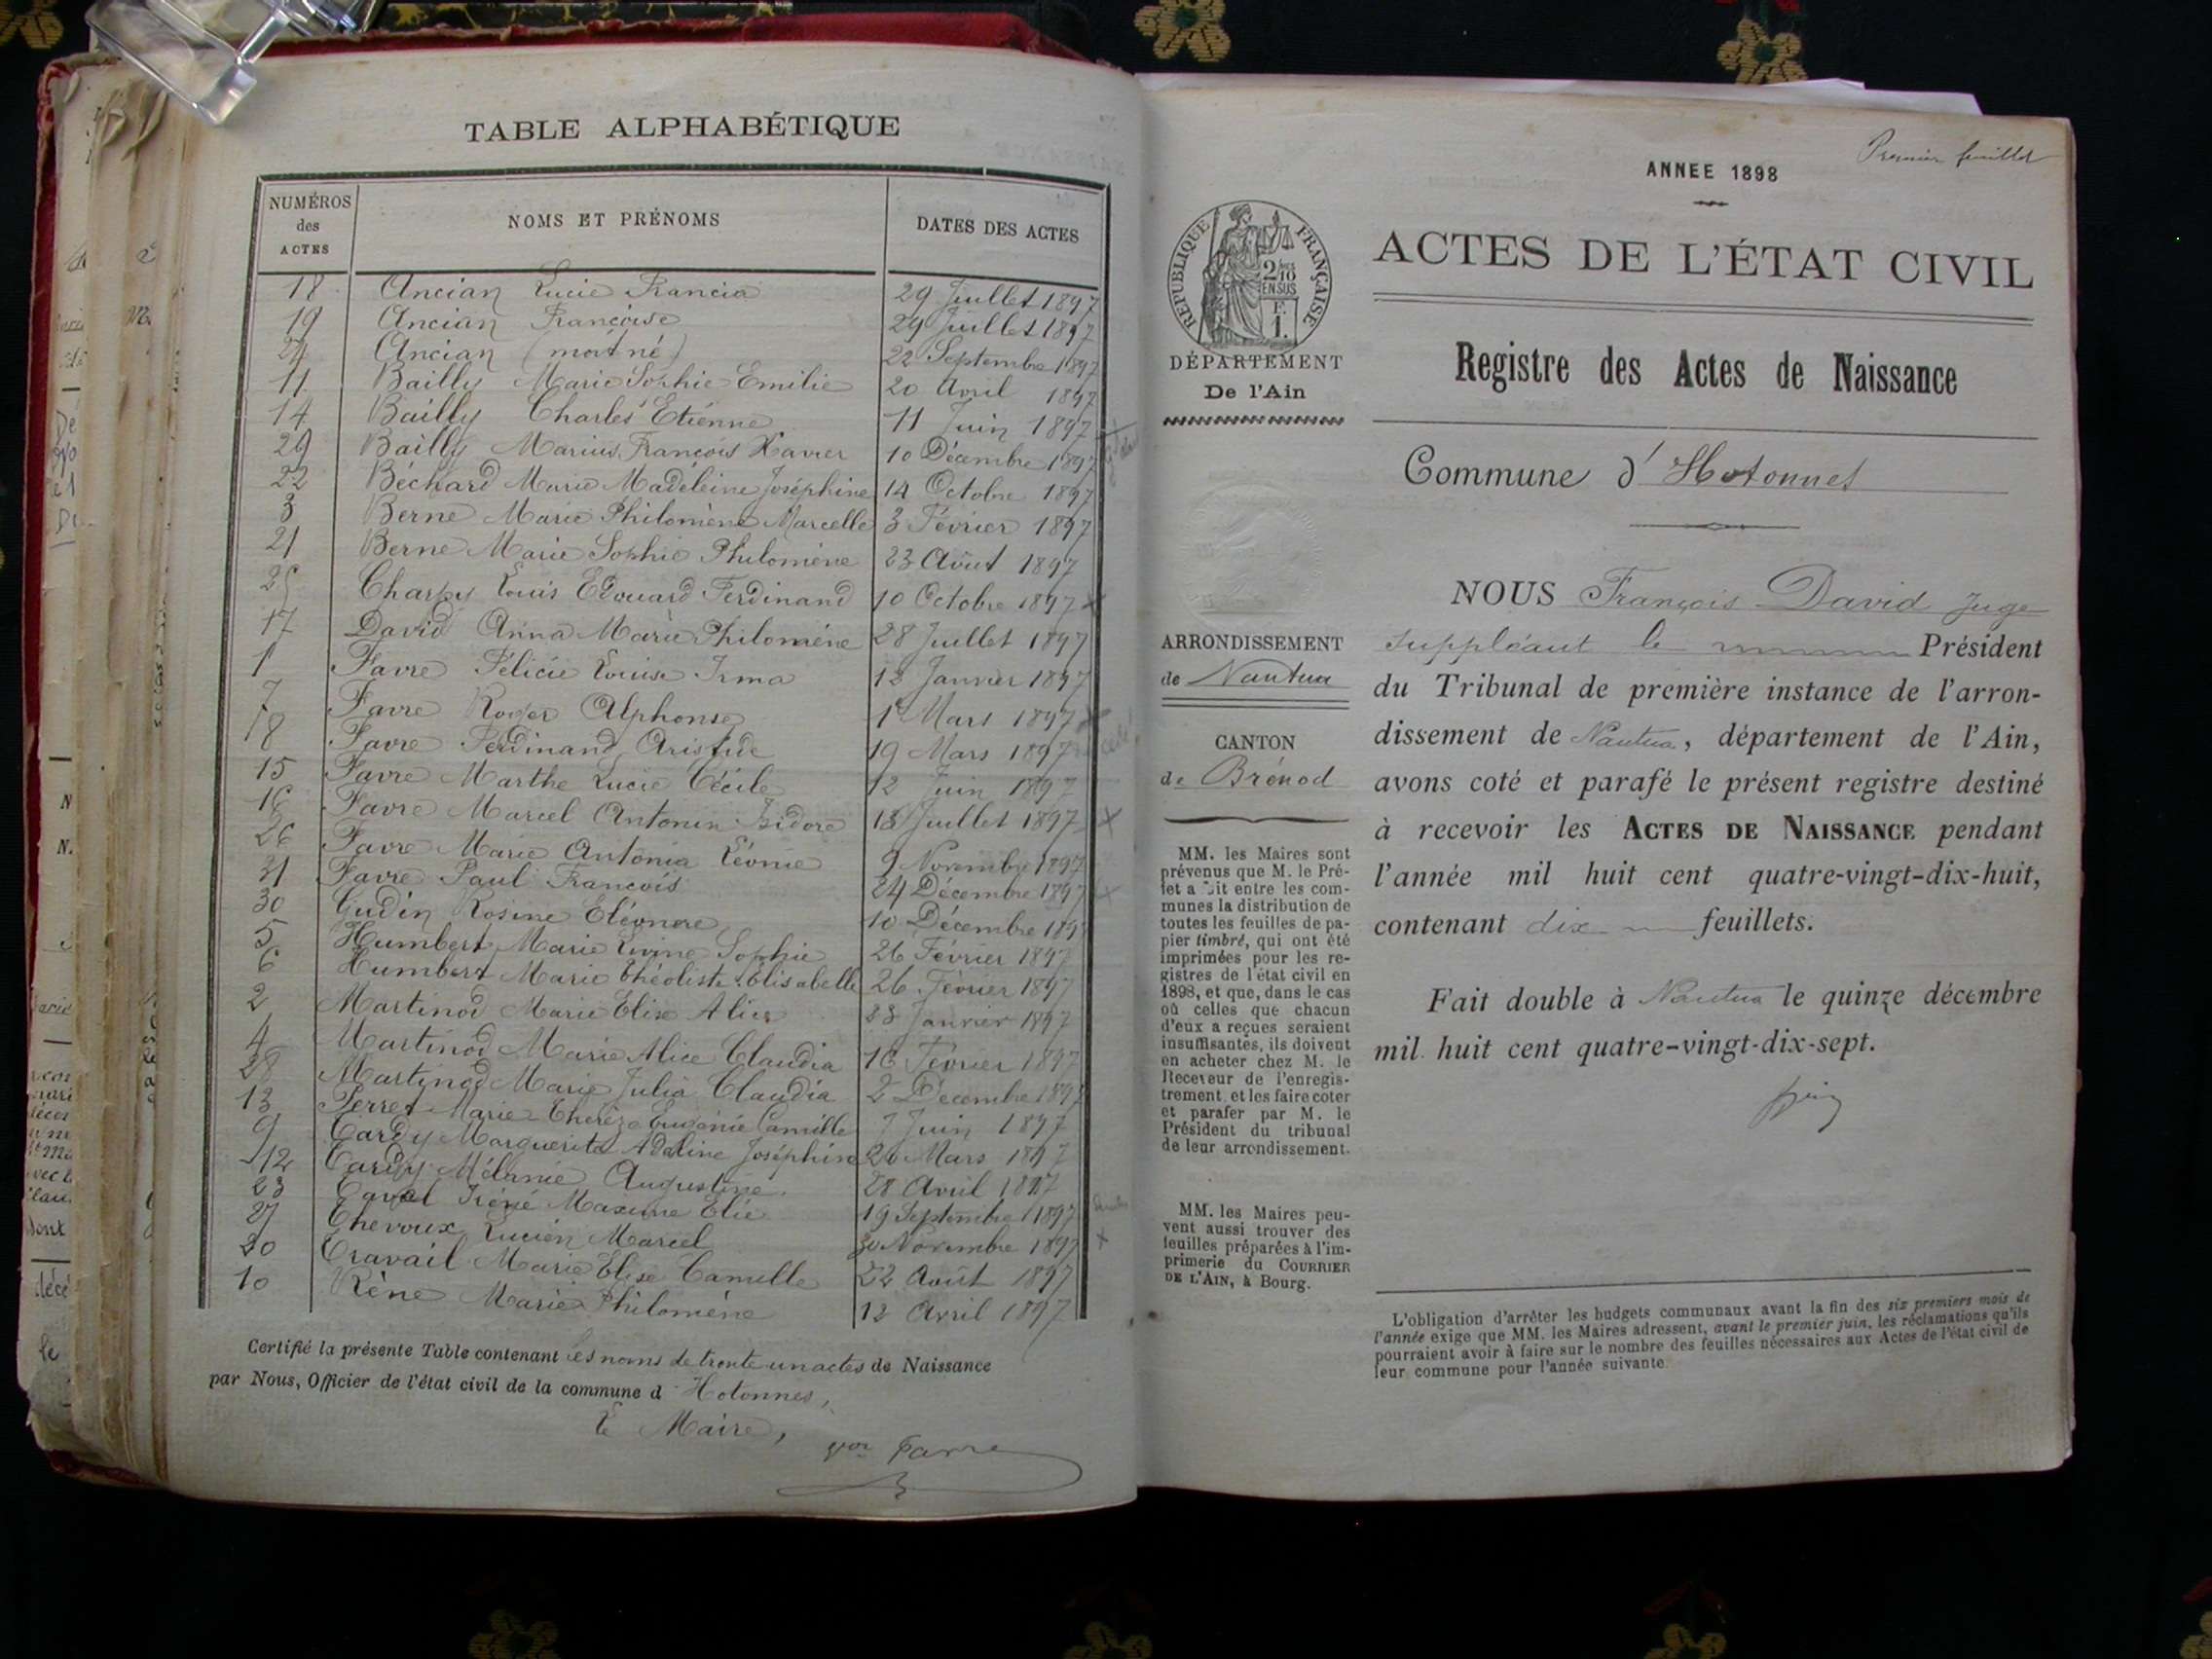 TABLE ALPHABÉTIQUE
NUMÉROS des ACTES NOMS ET PRÉNOMS DATES DES ACTES
18 Ancian Lucie Francia 29 Juillet 1897
19 Ancian Françoise 29 Juillet 1897
24 Ancian (mort né) 22 Septembre 1897
11 Bailly Marie Sophie Emilie 20 Avril 1897
14 Bailly Charles Etienne 11 Juin 1897
29 Bailly Marius François Xavier 10 Décembre 1897
22 Béchard Marie Madéleine Joséphine 14 Octobre 1897
3 Berne Marie Philomène Marcelle 3 Février 1897
21 Berne Marie Sophie Philomène 23 Août 1897
25 Charpy Louis Edouard Ferdinand 10 Octobre 1897
17 David Anna Marie Philomène 28 Juillet 1897
1 Favre Félicie Louise Irma 12 Janvier 1897
7 Favre Roger Alphonse 1er Mars 1897
18 Favre Ferdinand Aristide 19 Mars 1897
15 Favre Marthe Lucie Cécile 12 Juin 1897
16 Favre Marcel Antonin Isidore 18 Juillet 1897
26 Favre Marie Antonia Léonie 9 Novembre 1897
31 Favre Paul François 24 Décembre 1897
30 Gudin Rosine Eléonore 10 Décembre 189
5 Humbert Marie Sophie 26 Février 1897
6 Humbert Marie Théoliste Elisabelle 26 Février 1897
2 Martinod Marie Elise Alice 23 Janvier 1897
4 Martinod Marie Alice Claudia 16 Février 1897
28 Martinod Marie Julia Claudia 2 Décembre 1897
13 Perret Marie Thérèze Eugénie Camille 7 Juin 1897
9 Tardy Marguerite Adeline Joséphine 20 Mars 1897
12 Tardy Mélanie Augustine 28 Avril 1897
23 Irénée Maxime Elie 19 Septembre 1897
27 Thevoux Lucien Marcel 30 Novembre 1897
20 Travail Marie Elise Camille 22 Août 1897
10 Rène Marie Philomène 12 Avril 1897
Certifié la présente Table contenant les noms de trente-un actes de Naissance
par Nous, Officier de l'état civil de la commune d'Hotonnes,
Le Maire,
Favre
Premier feuillet
ANNEE 1898
ACTES DE L'ÉTAT CIVIL
RÉPUBLIQUE FRANÇAISE
2 10 EN SUS
F. 1.
DÉPARTEMENT
De l'Ain
Registre des Actes de Naissance
Commune d'Hotonnes
ARRONDISSEMENT
de Nantua
CANTON
de Brénod
MM. les Maires sont
prévenus que M. le Pré-
fet a fait entre les com-
munes la distribution de
toutes les feuilles de pa-
pier timbré, qui ont été
imprimées pour les re-
gistres de l'état civil en
1898, et que, dans le cas
où celles que chacun
d'eux a reçues seraient
insuffisantes, ils doivent
en acheter chez M. le
Receveur de l'enregis-
trement et les faire coter
et parafer par M. le
Président du tribunal
de leur arrondissement.
MM. les Maires peu-
vent aussi trouver des
feuilles préparées à l'im-
primerie du COURRIER
DE L'AIN, à Bourg.
NOUS François David Juge
suppléant le Président
du Tribunal de première instance de l'arron-
dissement de Nantua, département de l'Ain,
avons coté et parafé le présent registre destiné
à recevoir les ACTES DE NAISSANCE pendant
l'année mil huit cent quatre-vingt-dix-huit,
contenant dix feuillets.
Fait double à Nantua le quinze décembre
mil huit cent quatre-vingt-dix-sept.
L'obligation d'arrêter les budgets communaux avant la fin des six premiers mois de
l'année exige que MM. les Maires adressent, avant le premier juin, les réclamations qu'ils
pourraient avoir à faire sur le nombre des feuilles nécessaires aux Actes de l'état civil de
leur commune pour l'année suivante.